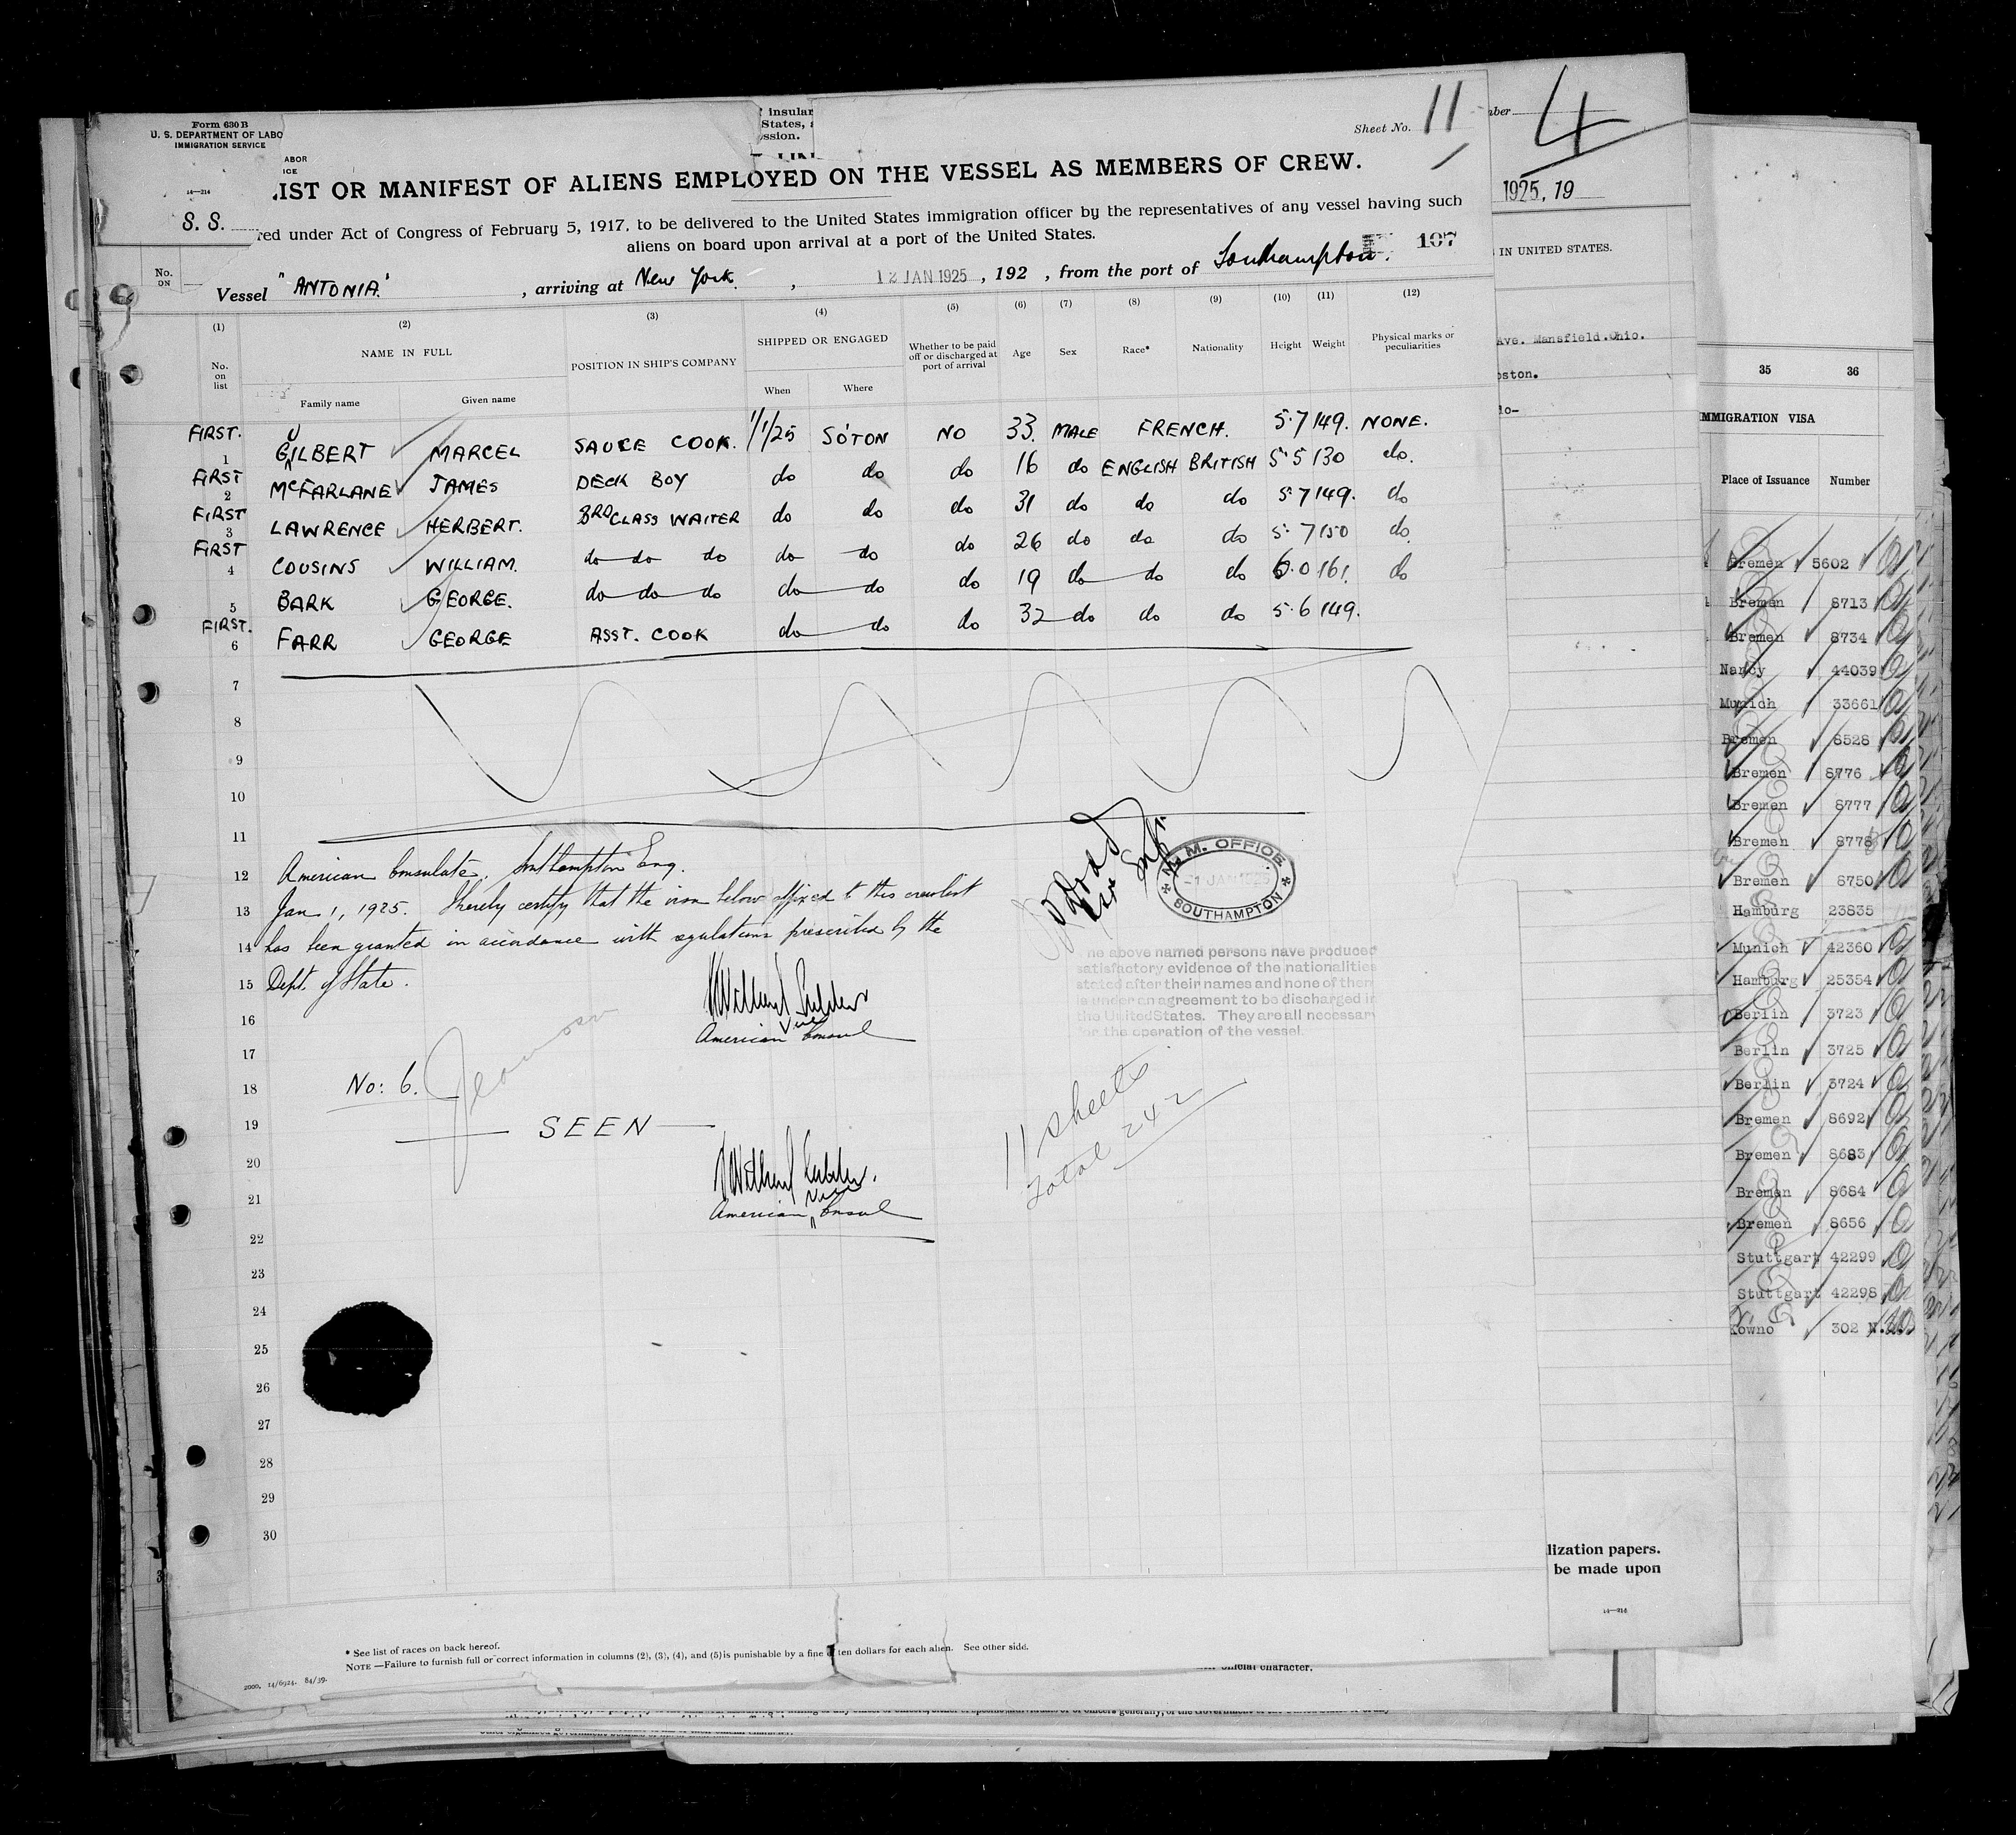 Form 630 B
U. S. DEPARTMENT OF LABO
IMMIGRATION SERVICE
ABOR
ICE
14—214
S. S.
No.
ON
insular
States, a
ssion.
Sheet No. 11
IST OR MANIFEST OF ALIENS EMPLOYED ON THE VESSEL AS MEMBERS OF CREW.
red under Act of Congress of February 5, 1917, to be delivered to the United States immigration officer by the representatives of any vessel having such
aliens on board upon arrival at a port of the United States.
107
Vessel "ANTONIA", arriving at New York, 12 JAN 1925, 192 , from the port of Southampton.
(1) (2) (3) (4) (5) (6) (7) (8) (9) (10) (11) (12)
No. on list
NAME IN FULL
Family name Given name
POSITION IN SHIP'S COMPANY
SHIPPED OR ENGAGED
When Where
Whether to be paid off or discharged at port of arrival
Age Sex Race* Nationality Height Weight
Physical marks or peculiarities
FIRST. 1 GILBERT MARCEL SAUCE COOK. 1/1/25 SO'TON NO 33. MALE FRENCH. 5.7 149. NONE.
FIRST 2 McFARLANE JAMES DECK BOY do do do 16 do ENGLISH BRITISH 5.5 130 do.
FIRST 3 LAWRENCE HERBERT. 3RD CLASS WAITER do do do 31 do do do 5.7 149. do
FIRST 4 COUSINS WILLIAM. do do do do do do 26 do do do 5.7 150 do.
5 BARK GEORGE. do do do do do do 19 do do do 6.0 161. do
FIRST. 6 FARR GEORGE ASST. COOK do do do 32 do do do 5.6 149.
7
8
9
10
11
12 American Consulate, Southampton Eng.
13 Jan 1, 1925. I hereby certify that the visa below affixed to this crewlist
14 has been granted in accordance with regulations prescribed by the
15 Dept. of State.
16
American Vice Consul
17
18 No: 6.
19 SEEN
20
21
American Vice Consul
22
23
24
25
26
27
28
29
30
M. M. OFFICE
-1 JAN 1925
SOUTHAMPTON
he above named persons have produced
satisfactory evidence of the nationalities
stated after their names and none of them
is under an agreement to be discharged in
the United States. They are all necessary
for the operation of the vessel.
11 sheets
Total 242
* See list of races on back hereof.
NOTE.—Failure to furnish full or correct information in columns (2), (3), (4), and (5) is punishable by a fine of ten dollars for each alien. See other side.
2000. 14/6924. 84/39.
official character.
mber 4
1925, 19
IN UNITED STATES.
Ave. Mansfield.Ohio.
oston.
do-
lization papers.
be made upon
14—214
35 36
IMMIGRATION VISA
Place of Issuance Number
Bremen 5602
Bremen 8713
Bremen 8734
Nancy 44039
Munich 33661
Bremen 8528
Bremen 8776
Bremen 8777
Bremen 8778
Bremen 8750
Hamburg 23835
Munich 42360
Hamburg 25354
Berlin 3723
Berlin 3725
Berlin 3724
Bremen 8692
Bremen 8683
Bremen 8684
Bremen 8656
Stuttgart 42299
Stuttgart 42298
Kowno 302